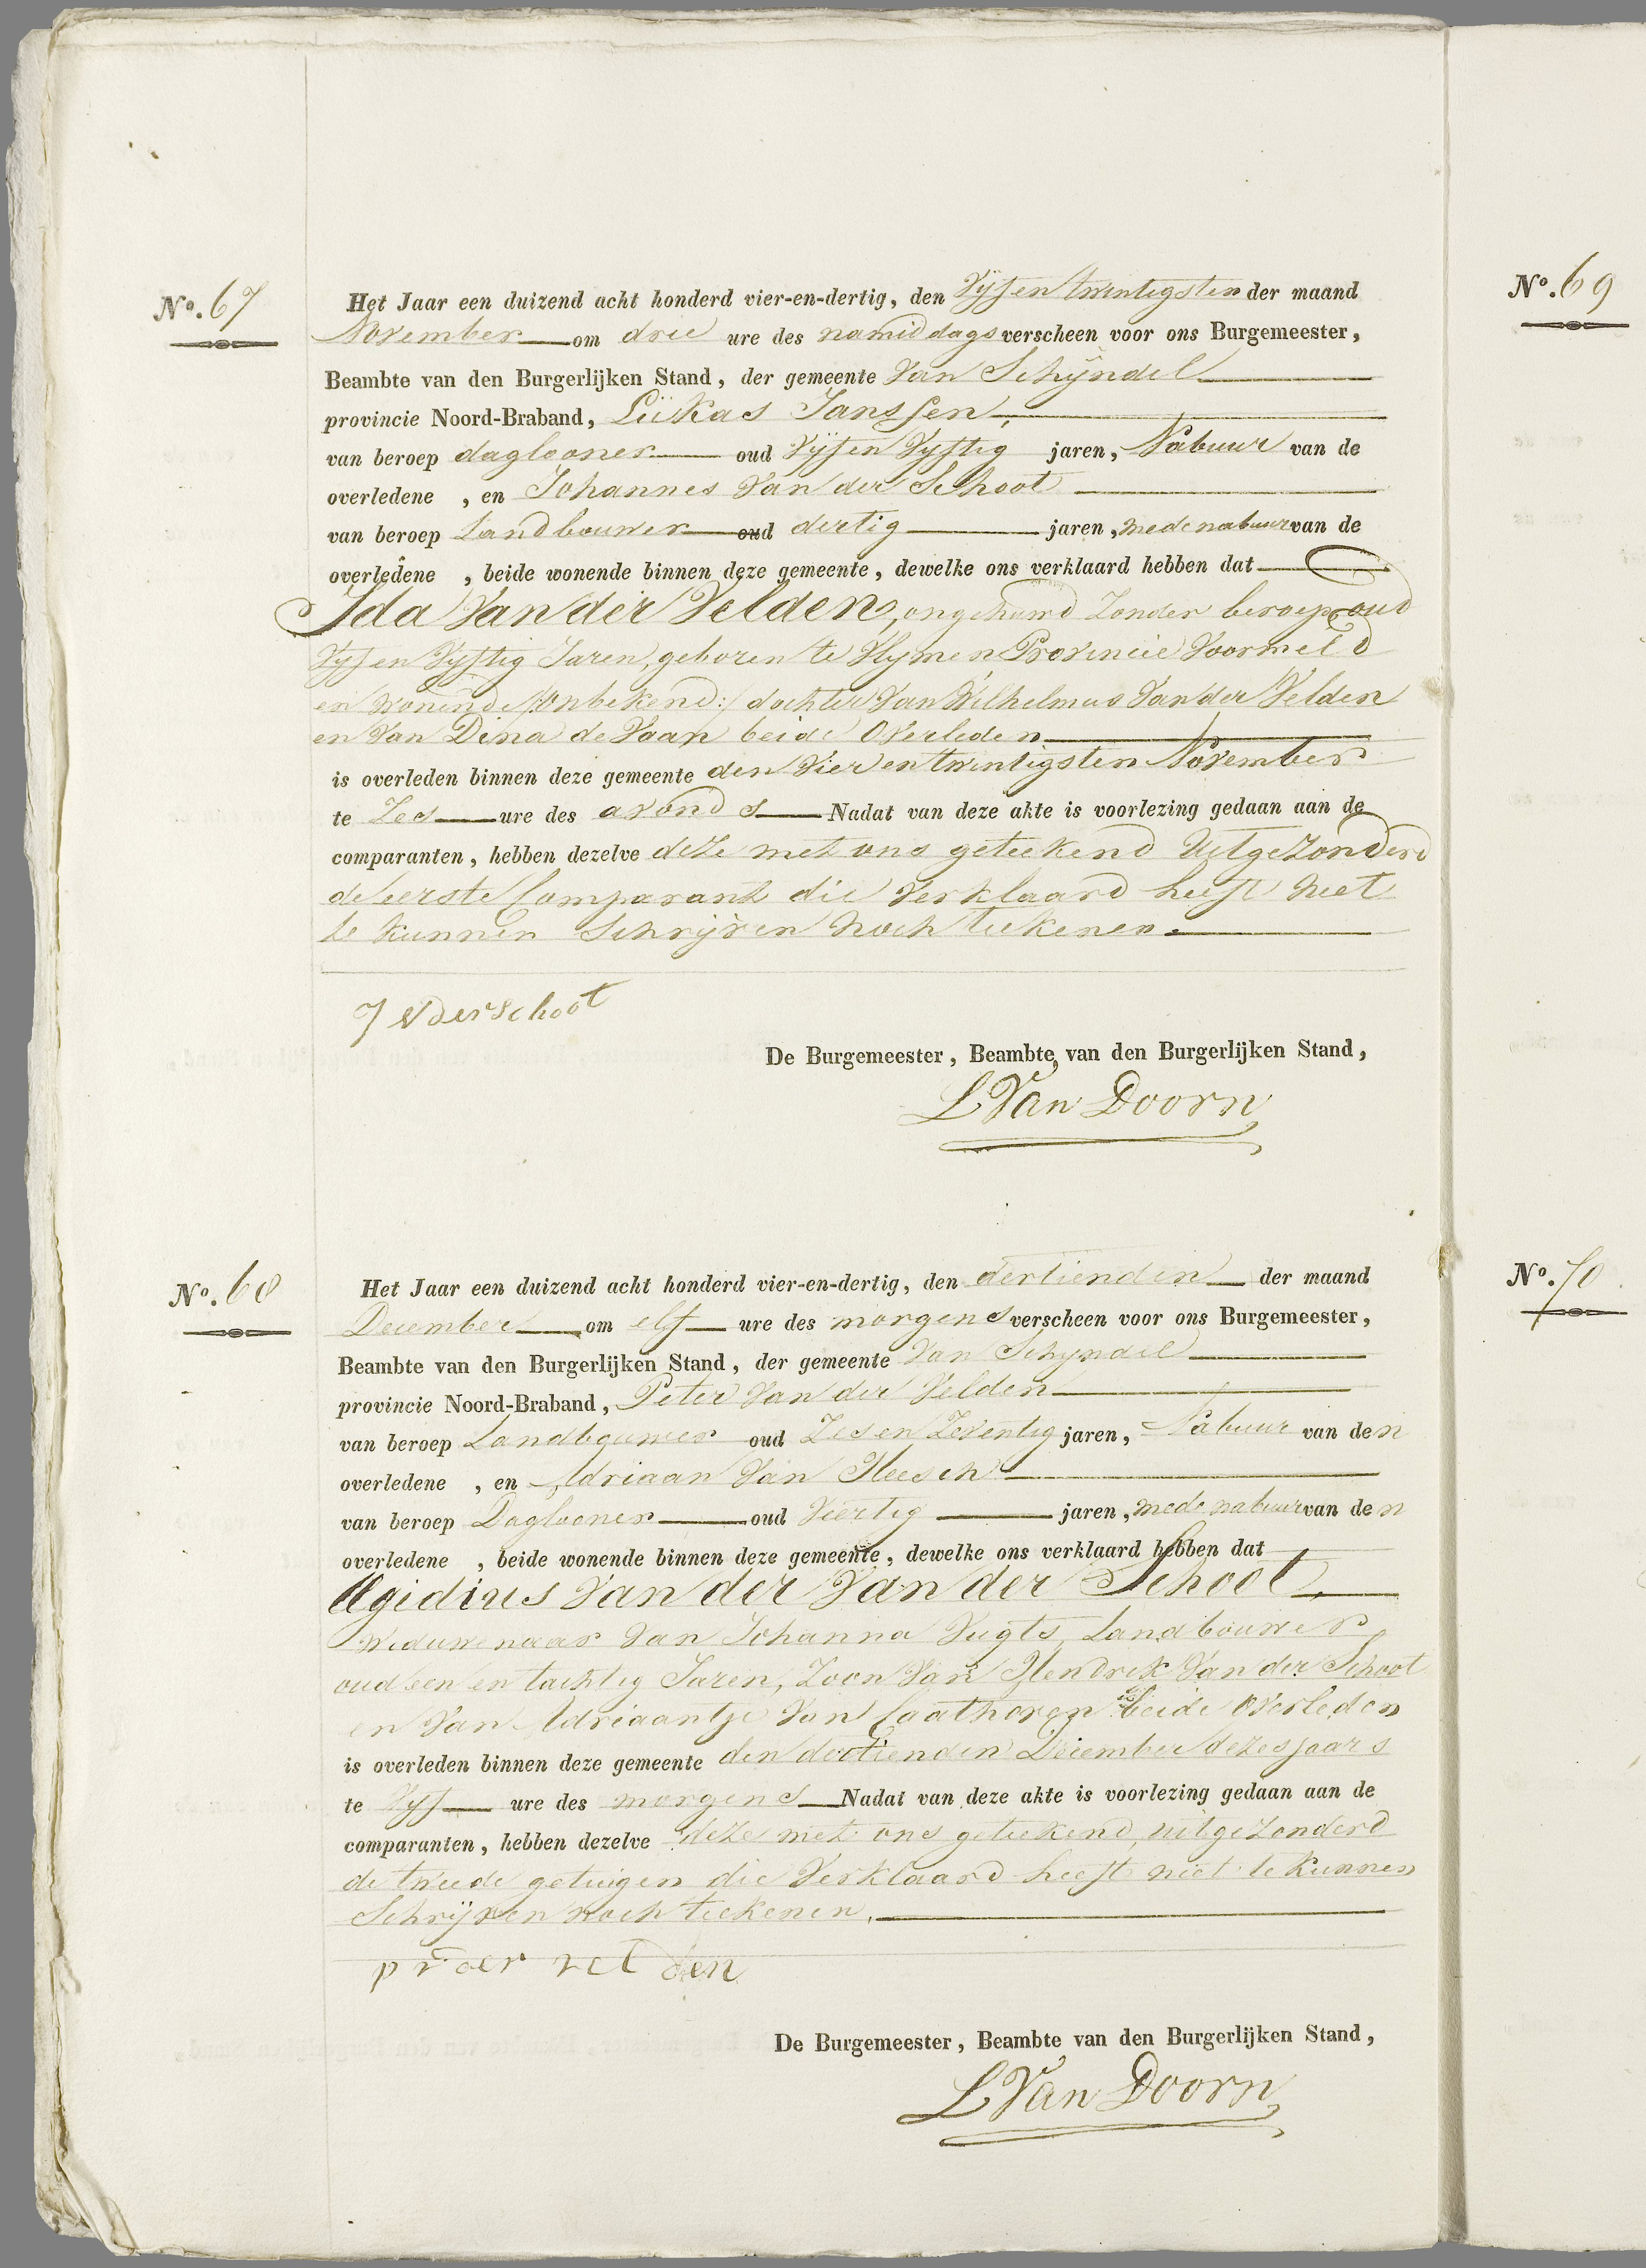 No. 67
Het Jaar een duizend acht honderd vier-en-dertig, den Vijf en twintigsten der maand
November om drie ure des namiddags verscheen voor ons Burgemeester,
Beambte van den Burgerlijken Stand, der gemeente Van Schijndel
provincie Noord-Braband, Lukas Janssen,
van beroep daglooner oud Vijf en Vijftig jaren, Nabuur van de
overledene , en Johannes Van der Schoot
van beroep Landbouwer oud dertig jaren, mede nabuur van de
overledene , beide wonende binnen deze gemeente, dewelke ons verklaard hebben dat
Ida Van der Velden, ongehuwd Zonder beroep oud
Vijf en Vijftig Jaren, geboren te Vlijmen Provincie Voormeld
en Wonende /:onbekend:/ dochter Van Wilhelmus Van der Velden
en Van Dina de Vaan beide Overleden
is overleden binnen deze gemeente den Vier en twintigsten November
te Zes ure des avonds Nadat van deze akte is voorlezing gedaan aan de
comparanten, hebben dezelve deze met ons geteekend Uitgezonderd
de eerste Comparant die Verklaard heeft niet
te kunnen Schrijven noch teekenen.
J v der schoot
De Burgemeester, Beambte van den Burgerlijken Stand,
L Van Doorn
No. 68
Het Jaar een duizend acht honderd vier-en-dertig, den dertienden der maand
December om elf ure des morgens verscheen voor ons Burgemeester,
Beambte van den Burgerlijken Stand, der gemeente Van Schijndel
provincie Noord-Braband, Peter Van der Velden
van beroep Landbouwer oud Zes en Zeventig jaren, Nabuur van den
overledene , en Adriaan Van Heesch
van beroep Daglooner oud Veertig jaren, mede nabuur van den
overledene , beide wonende binnen deze gemeente, dewelke ons verklaard hebben dat
Egidius Van der Van der Schoot,
Weduwenaar Van Johanna Vugts, Landbouwer
oud een en tachtig Jaren, Zoon Van Hendrik Van der Schoot
en Van Adriaantje Van Caathoven beide Overleden
is overleden binnen deze gemeente den dertienden December dezes jaars
te Vijf ure des morgens Nadat van deze akte is voorlezing gedaan aan de
comparanten, hebben dezelve deze met ons geteekend, uitgezonderd
de tweede getuigen die Verklaard heeft niet te kunnen
Schrijven noch teekenen.
p v der velden
De Burgemeester, Beambte van den Burgerlijken Stand,
L Van Doorn
No. 69
No. 70